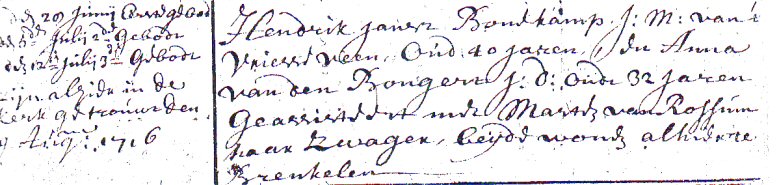 den 28 Junij Eerste gebod
den 5de Julij 2de Gebodt
den 12de Julij 3de Gebodt
zijn alhier in de
Kerk getrouwd den
Aug: 1716
Hendrik Jansz Bonekamp J: M: van 't
Vriesseveen, Oud 40 jaren, en Anna
van den Bongert J: D: oudt 32 jaren
Geassisteert met Marten van Rossum
haar Zwager, beyde wonende alhier te
Breukelen